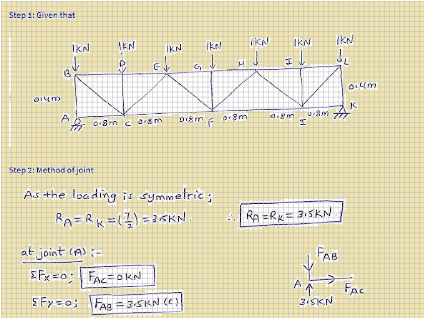 Step 1: Given that
1KN 1KN 1KN 1KN 1KN 1KN 1KN
B D E G H I L
0.4m 0.4m
A 0.8m C 0.8m 0.8m F 0.8m 0.8m I 0.8m K
Step 2: Method of joint
As the loading is symmetric;
RA = RK = (7/2) = 3.5KN. ∴ RA = RK = 3.5KN
at joint (A) :-
ΣFx=0; FAC = 0KN
ΣFy=0; FAB = 3.5KN (C)
FAB
A FAC
3.5KN